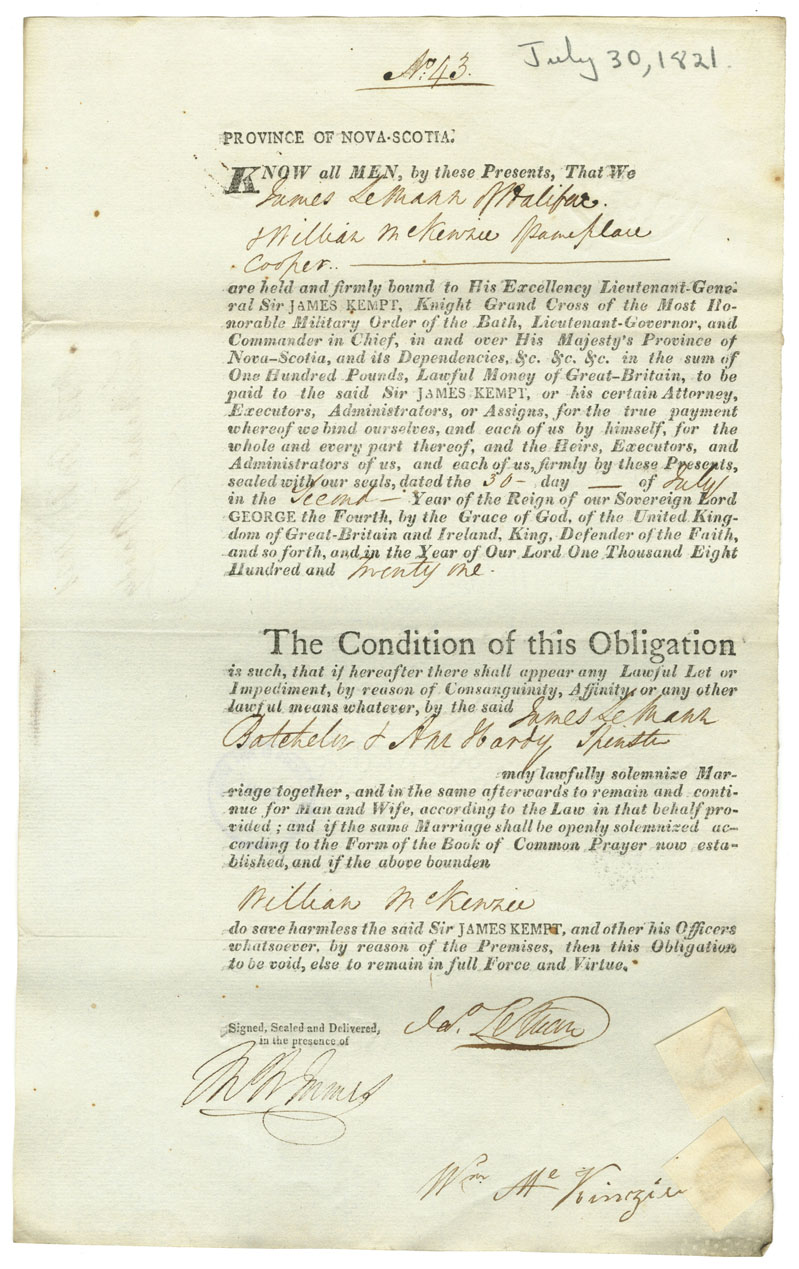 No. 43.
July 30, 1821.
PROVINCE OF NOVA-SCOTIA.
KNOW all MEN, by these Presents, That We
James LeMann of Halifax.
& William McKenzie of same place
Cooper..
are held and firmly bound to His Excellency Lieutenant-Gene-
ral Sir JAMES KEMPT, Knight Grand Cross of the Most Ho-
norable Military Order of the Bath, Lieutenant-Governor, and
Commander in Chief, in and over His Majesty's Province of
Nova-Scotia, and its Dependencies, &c. &c. &c. in the sum of
One Hundred Pounds, Lawful Money of Great-Britain, to be
paid to the said Sir JAMES KEMPT, or his certain Attorney,
Executors, Administrators, or Assigns, for the true payment
whereof we bind ourselves, and each of us by himself, for the
whole and every part thereof, and the Heirs, Executors, and
Administrators of us, and each of us, firmly by these Presents,
sealed with our seals, dated the 30 - day — of July
in the Second - Year of the Reign of our Sovereign Lord
GEORGE the Fourth, by the Grace of God, of the United King-
dom of Great-Britain and Ireland, King, Defender of the Faith,
and so forth, and in the Year of Our Lord One Thousand Eight
Hundred and Twenty one.
The Condition of this Obligation
is such, that if hereafter there shall appear any Lawful Let or
Impediment, by reason of Consanguinity, Affinity, or any other
lawful means whatever, by the said James LeMann
Batchelor & Ann Hardy Spinster
may lawfully solemnize Mar-
riage together, and in the same afterwards to remain and conti-
nue for Man and Wife, according to the Law in that behalf pro-
vided; and if the same Marriage shall be openly solemnized ac-
cording to the Form of the Book of Common Prayer now esta-
blished, and if the above bounden
William McKenzie
do save harmless the said Sir JAMES KEMPT, and other his Officers
whatsoever, by reason of the Premises, then this Obligation
to be void, else to remain in full Force and Virtue.
Signed, Sealed and Delivered,
in the presence of
Jas. LeMann
James
Wm. McKinzie